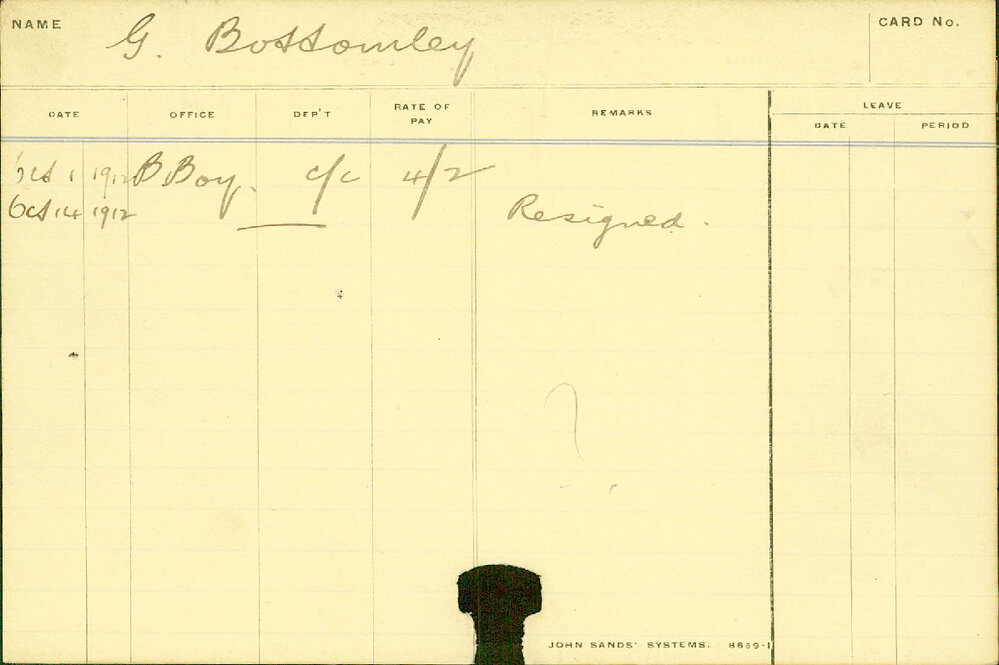 NAME G. Bottomley CARD No.
DATE OFFICE DEP'T RATE OF PAY REMARKS LEAVE
DATE PERIOD
Oct 1 1912 B Boy. c/c 4/2
Oct 14 1912 Resigned.
JOHN SANDS' SYSTEMS. 8639-1